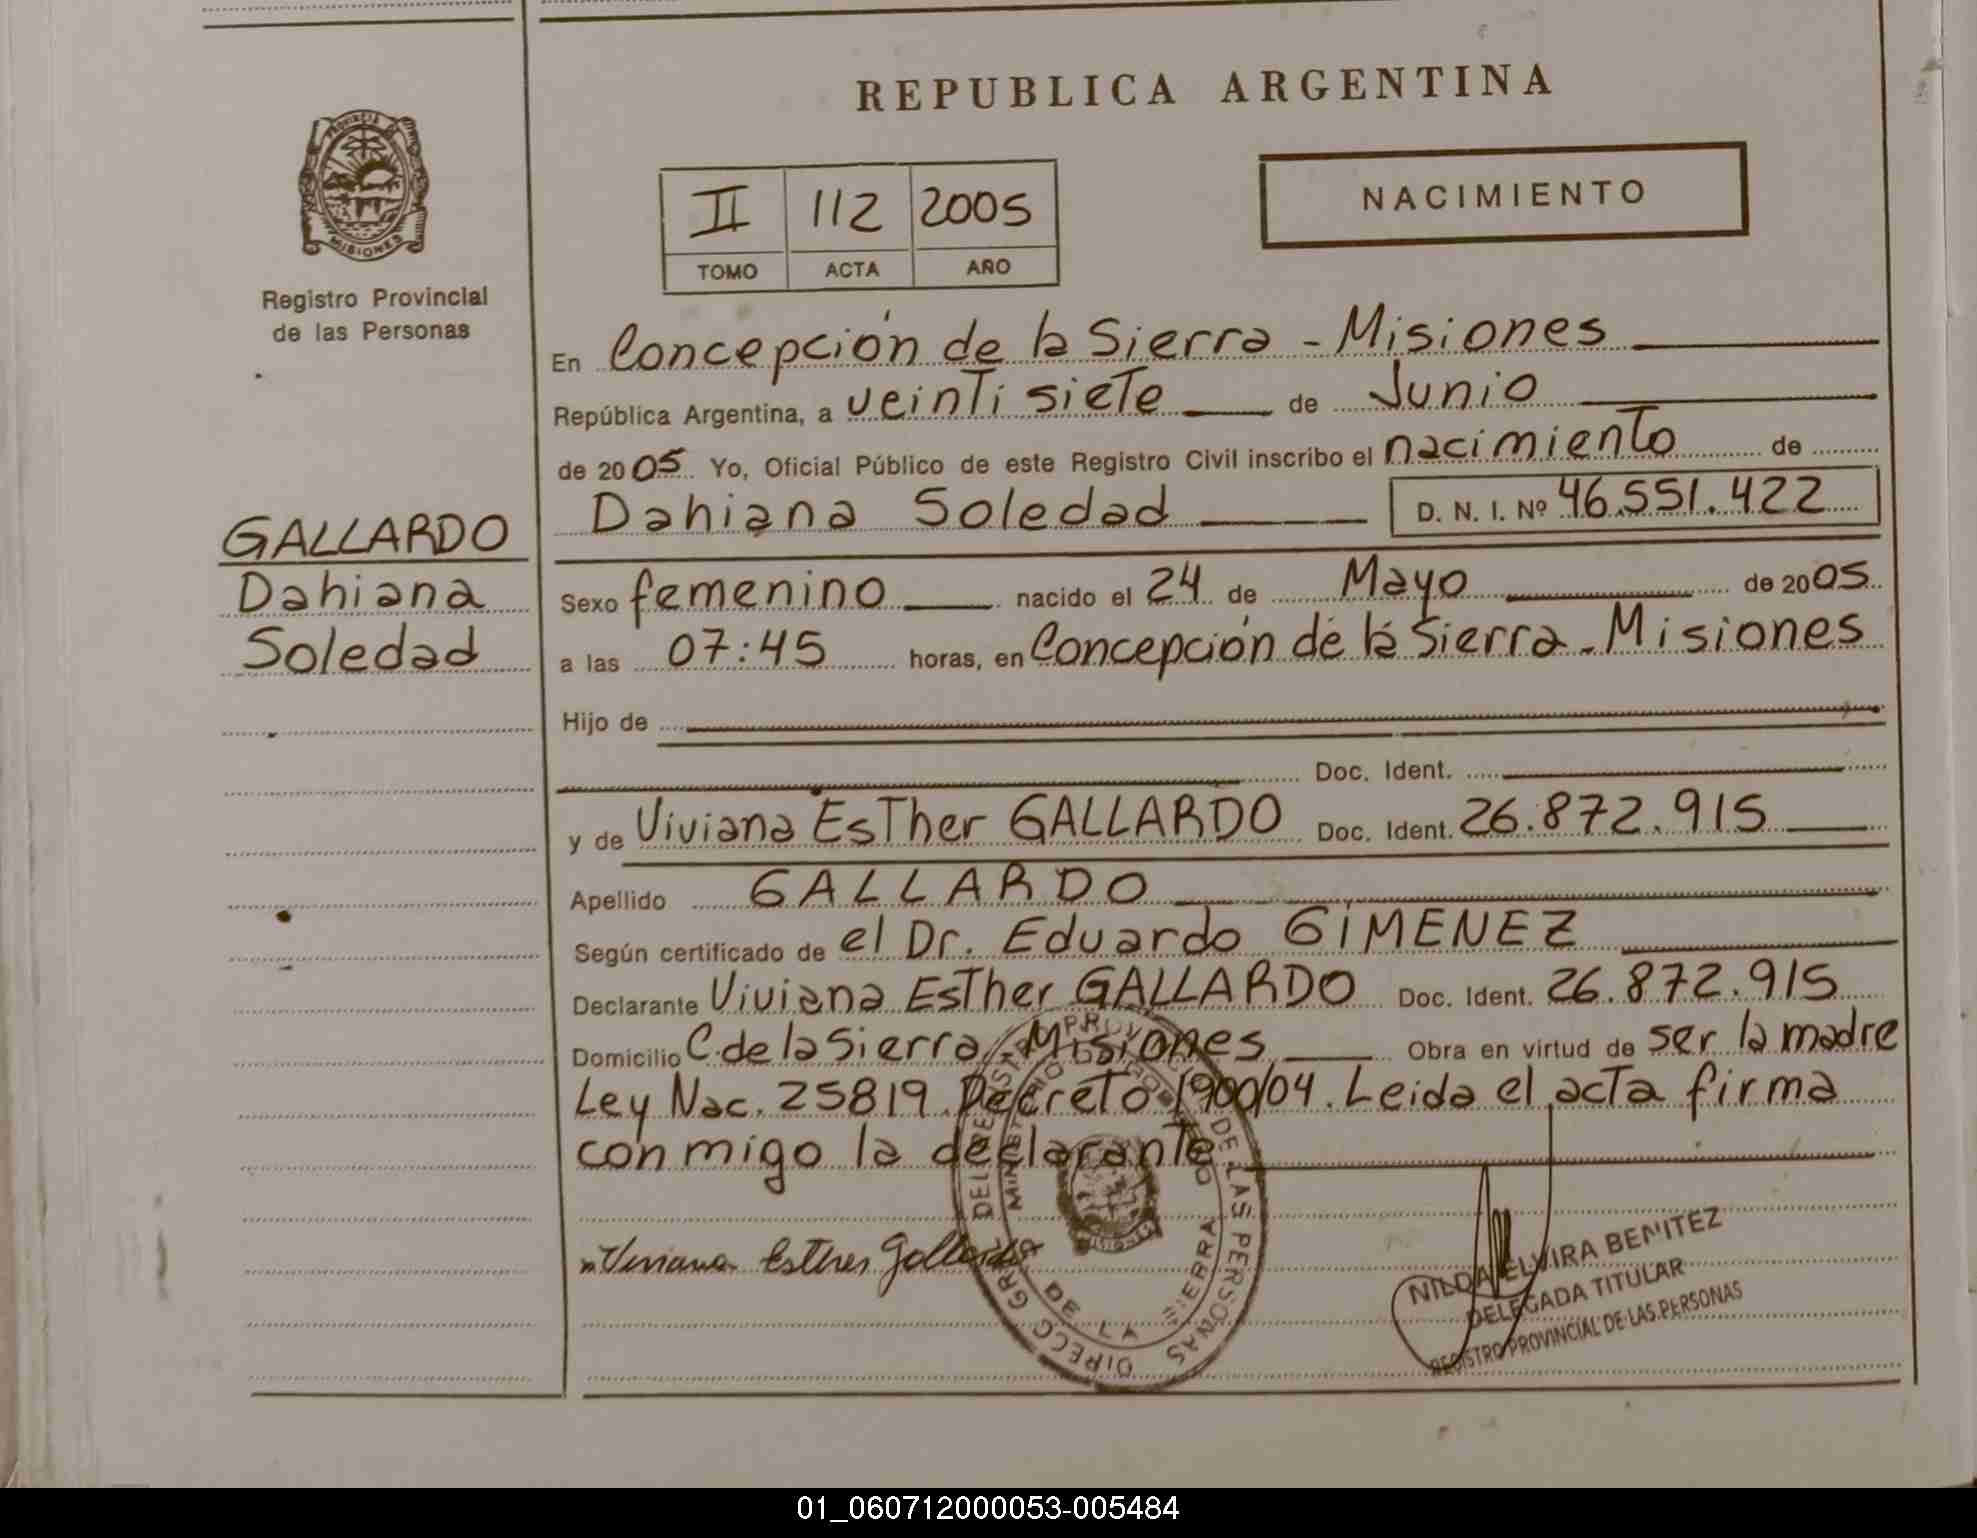 REPUBLICA ARGENTINA
PROVINCIA DE
MISIONES
Registro Provincial
de las Personas
II 112 2005
TOMO ACTA AÑO
NACIMIENTO
En Concepción de la Sierra - Misiones
República Argentina, a veinti siete de Junio
de 2005 Yo, Oficial Público de este Registro Civil inscribo el nacimiento de
Dahiana Soledad D. N. I. Nº 46.551.422
GALLARDO
Dahiana
Soledad
Sexo femenino nacido el 24 de Mayo de 2005
a las 07:45 horas, en Concepción de la Sierra - Misiones
Hijo de
Doc. Ident.
y de Viviana EsTher GALLARDO Doc. Ident. 26.872.915
Apellido GALLARDO
Según certificado de el Dr. Eduardo GiMENEZ
Declarante Viviana EsTher GALLARDO Doc. Ident. 26.872.915
Domicilio C. de la Sierra - Misiones Obra en virtud de ser la madre
Ley Nac. 25819. Decreto 1900/04. Leida el acta firma
con migo la declarante
Esther Gallardo
DE LAS PERSONAS
DE LA SIERRA
NILDA ELVIRA BENITEZ
DELEGADA TITULAR
REGISTRO PROVINCIAL DE LAS PERSONAS
01_060712000053-005484